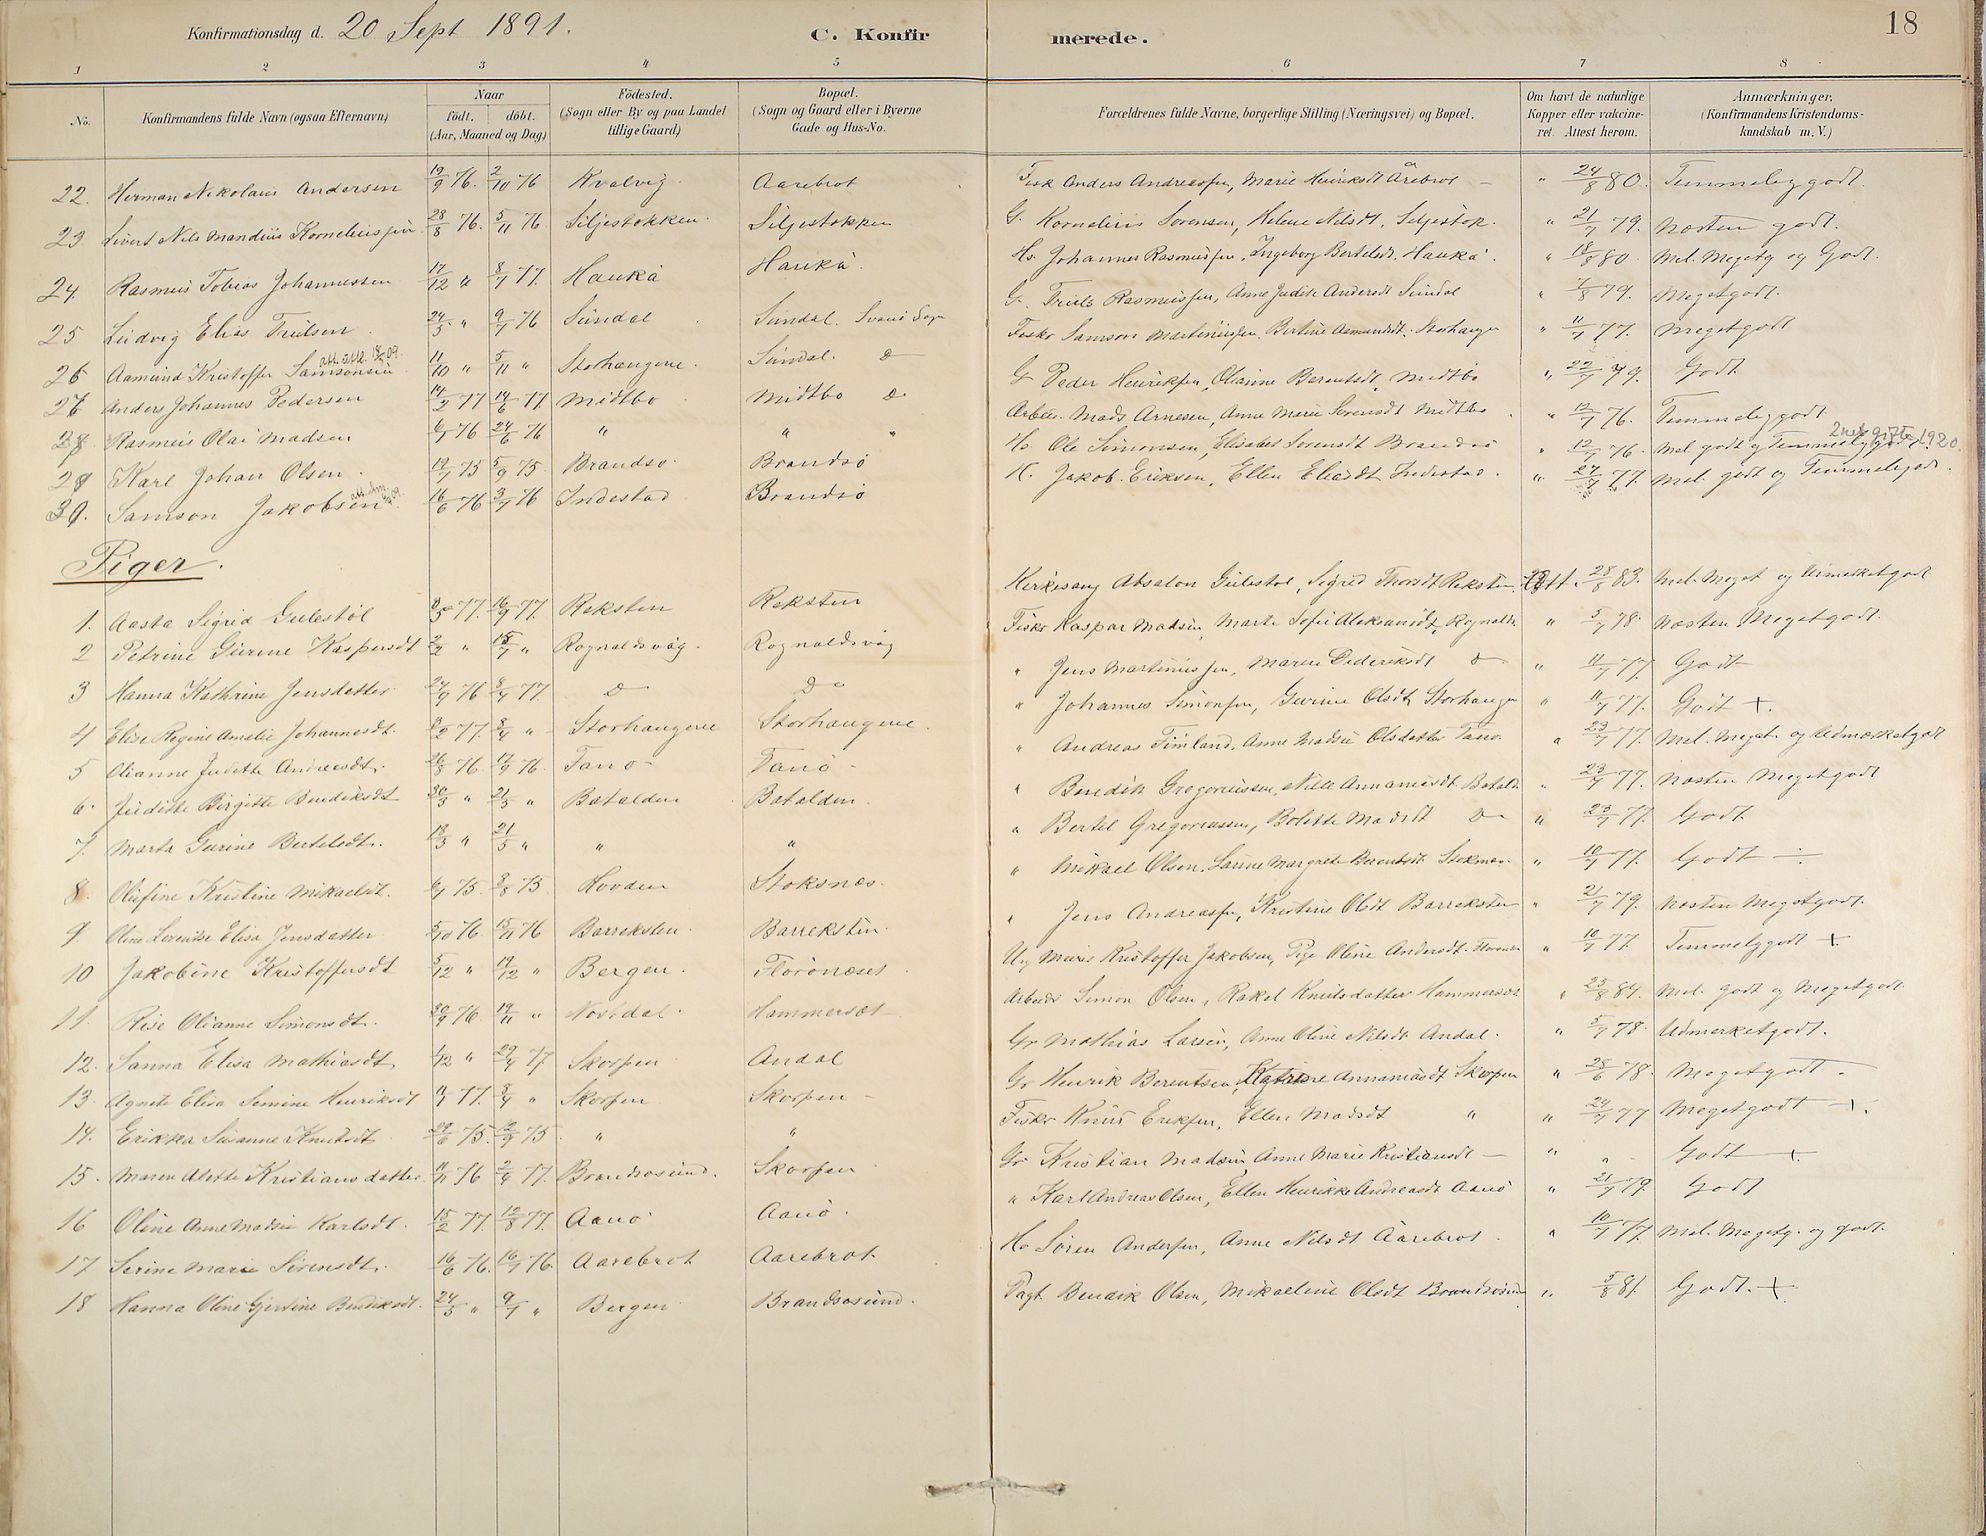 18
Konfirmationsdag d. 20 Sept 1891. C. Konfir merede.
1 2 3 4 5 6 7 8
No. Konfirmandens fulde Navn (ogsaa Efternavn) Naar födt. döbt. (Aar, Maaned og Dag) Födested. (Sogn eller By og paa Landet tillige Gaard) Bopæl. (Sogn og Gaard eller i Byerne Gade og Hus-No. Forældrenes fulde Navne, borgerlige Stilling (Næringsvei) og Bopæl. Om havt de naturlige Kopper eller vakcineret. Attest herom. Anmærkninger. (Konfirmandens Kristendomskundskab m. V.)
22. Herman Nikolaus Andersen 19/9 76. 2/10 76 Kvalvig. Aarebrot Fisk Anders Andreassen, Marie Henriksdt Årebrot — " 24/8 80. Temmelig godt.
23. Sivert Nils Mandius Korneliussen 28/8 76. 5/11 76 Siljestokken. Siljestokken G. Kornelius Sorensen, Helene Nilsdt. Seljestok. " 21/7 79. Næsten godt.
24. Rasmus Tobias Johannessen 17/12 " 8/7 77. Haukå Haukå. Hs. Johannes Rasmussen, Ingeborg Bertelsdt. Haukå. " 18/8 80. Mel. Megetg og Godt.
25 Ludvig Elias Trulsen 24/5 " 9/7 76 Sundal Sundal. Svanö Sogn G. Truls Rasmussen, Anne Judith Andersdt Sundal " 7/8 79. Megetgodt.
26 Aamund Kristoffer Samsonsen 11/10 " 5/11 " Storhaugene. Sundal. Do Fisker Samson Martinussen, Bertine Aamundsdt. Storhaugen " 11/7 77. Megetgodt
27 Anders Johannes Pedersen 14/2 77 14/6 77. Midtbo Midtbo Do G Peder Henriksen, Olianne Berentsdt, Midtbö " 22/7 79. Godt
28. Rasmus Olai Madsen 6/7 76 24/6 76 " " " Arbeis. Mads Arnesen, Anne Marie Sorensdt Midtbo " 12/7 76. Temmelig godt
29 Karl Johan Olsen. 19/7 75 5/9 75. Brandsö Brandsö Hs. Ole Simonsen, Elisabet Sorensdt Brandsö " 12/7 76. Mel godt og Temmelig godt 1920.
30. Samson Jakobsen 16/6 76 3/7 76 Indestad Brandsö H. Jakob Eriksen, Ellen Eliasdt Indestad. " 24/7 77. Mel. godt og Temmelig godt.
Piger.
1. Aasta Sigrid Gulestöl 8/5 77. 16/9 77. Reksten Reksten Kirkesang Absalon Gulestöl, Sigrid Thorsdt Reksten. Att. 28/8 83. Mel. Meget og Udmerketgodt
2 Petrine Gurine Kaspersdt 2/2 " 15/7 " Rognaldsvåg. Rognaldsvåg Fisker Kaspar Madsen, Marte Sofie Aleksandsdt, Rognalds " 5/7 78. Næsten Megetgodt.
3 Hanna Kathrine Jensdatter. 24/9 76 8/4 77. Do Do " Jens Martinussen, Maren Dideriksdt Do " 11/7 77. Godt
4 Elise Regine Amalie Johannesdt. 8/2 77. 8/4 " Storhaugene Storhaugene. " Johannes Simonsen, Gurine Olsdt, Storhaugen " 11/7 77. Godt +.
5 Olianne Judithe Andreasdt. 26/8 76. 17/9 76. Tanö Tanö " Andreas Fimland. Anne Madsie Olsdatter Tanö. " 23/7 77. Mel. Meget. og Udmærketgodt
6. Judithe Birgitte Bendiksdt 30/3 " 21/5 " Batalden Batalden. " Bendik Gregoriussen, Nille Annanisdt. Batald. " 23/7 77. Næsten Megetgodt
7. Marta Gurine Bertelsdt. 18/3 " 21/5 " " " " Bertel Gregoriussen, Bolette Madsdt Do " 23/7 77. Godt
8. Olufine Kristine Mikaelsdt. 6/7 75. 3/8 75. Hovden Stoksnæs. " Mikael Olsen, Larine Margrete Berentsdt Stoksnæs. " 10/7 77. Godt —
9. Oline Lorentse Elisa Jensdatter 5/10 76. 15/11 76 Barreksten. Barreksten. " Jens Andreassen, Kristine Olsdt Barreksten " 21/7 79. Næsten Megetgodt.
10 Jakobine Kristoffersdt 5/12 " 19/12 " Bergen. Florönæset. Ug Murer Kristoffer Jakobsen, Pige Oline Andersdt. " 10/7 77. Temmeliggodt +
11. Olianne Simonsdt. 30/9 76. 19/11 " Nordal. Hammersæt Arbeider Simon Olsen, Rakel Knutsdatter Hammersæt. " 25/8 84. Mel. godt og Megetgodt.
12. Sanna Elisa Mathiasdt. 1/12 " 29/4 77 Skorpen Andal Gr Mathias Larsen, Anne Oline Nilsdt Andal. " 5/7 78. Udmerketgodt.
13. Agnete Elisa Semine Henriksdt 11/1 77. 8/4 " Skorpen Skorpen Gr Henrik Berentsen, Katrine Annanisdt Skorpen " 28/6 78. Megetgodt.
14. Erikka Susanne Knutsdt. 29/6 75. 12/9 75. " " Fisker Knut Eriksen, Ellen Madsdt " " 24/7 77 Megetgodt +.
15. Maren Alette Kristiansdatter. 11/11 76 2/4 77. Brandsösund. Skorpen Gr Kristian Madsen, Anne Marie Kristiansdt — " " Godt +
16 Oline Anne Madsie Karlsdt. 15/2 77. 12/8 77. Aanö Aanö. " Karl Andreas Olsen, Ellen Henrikke Andreasdt Aanö " 21/7 79. Godt
17 Serine Marie Sörensdt. 16/6 76. 16/7 76. Aarebrot Aarebrot. Hs Sören Andersen, Anne Nilsdt Aarebrot. " 10/7 77. Mel. Megetg. og godt.
18 Hanna Oline Gjertine Bendiksdt. 24/5 " 9/7 " Bergen Brandsösund. Pagt Bendik Olsen, Mikaeline Olsdt Brandsösund " 5/8 81. Godt. +